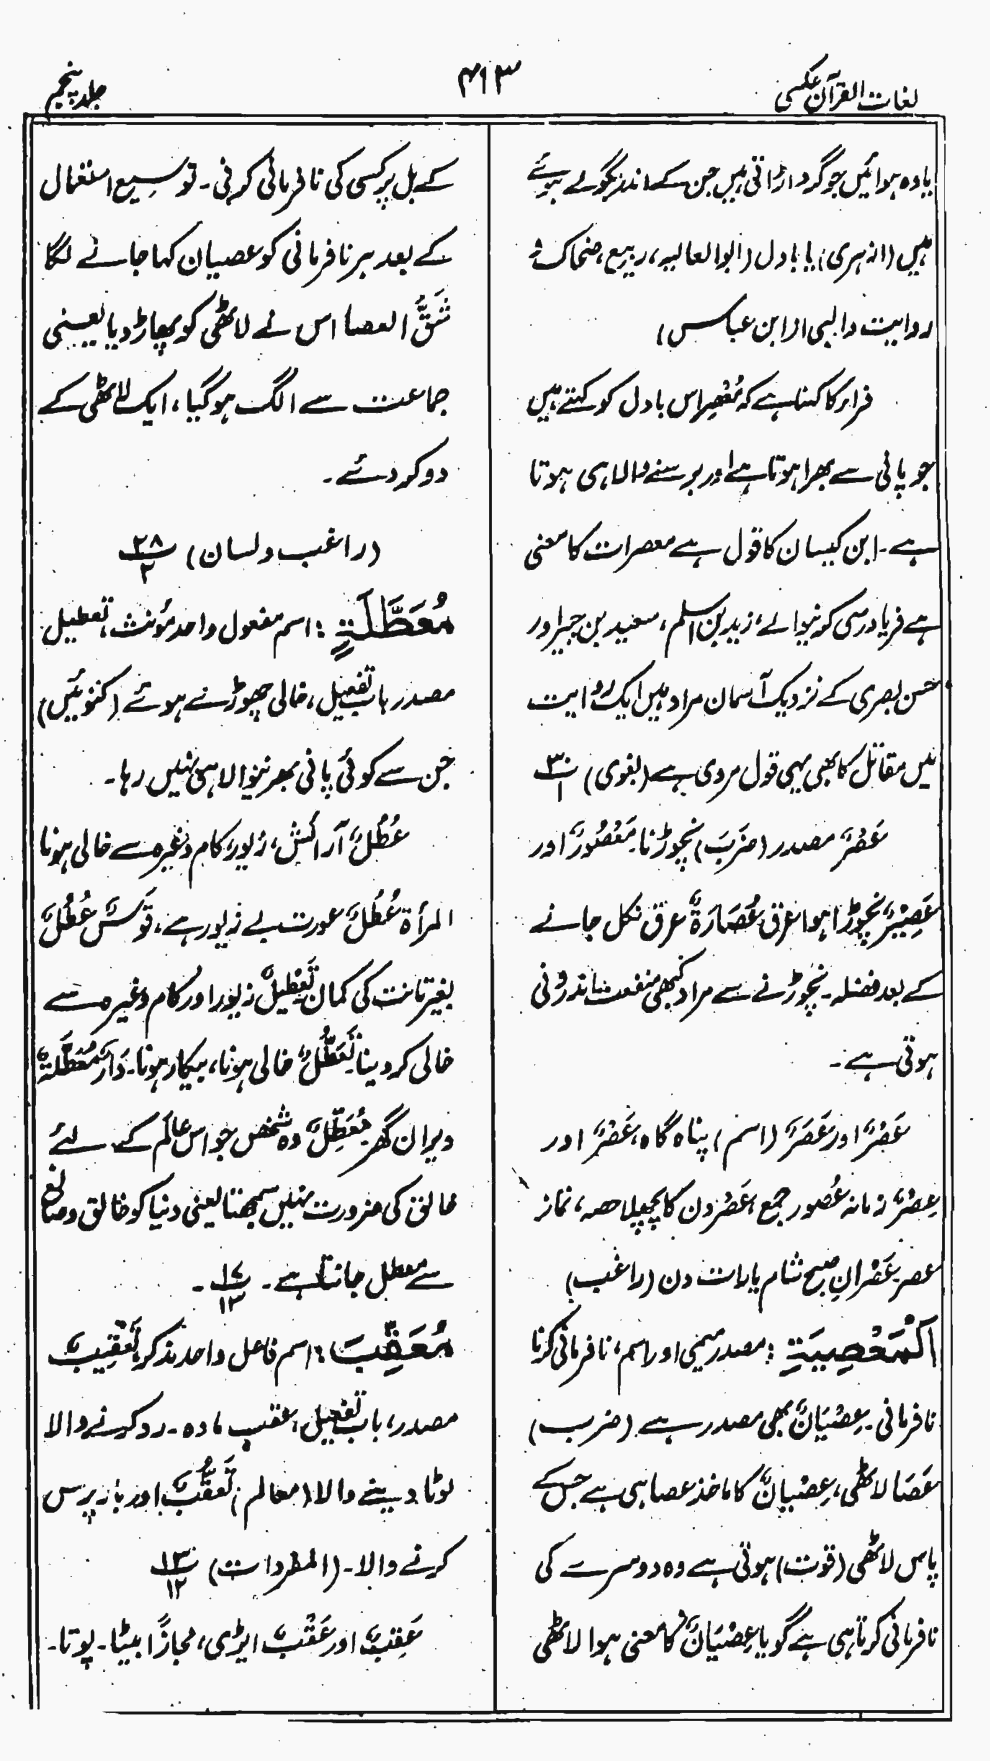 لغات القرآن عکسی
۴۱۳
جلد پنجم
یا وہ ہوائیں جو گرد اڑاتی ہیں جن کے اندر بگولے ہوتے
ہیں (ازہری) یا بادل (ابوالعالیہ، ربیع، ضحاک،
روایت والبی از ابن عباس)
فراء کا کہنا ہے کہ مُعْصِر اس بادل کو کہتے ہیں
جو پانی سے بھرا ہوتا ہے اور برسنے والا ہی ہوتا
ہے۔ ابن کیسان کا قول ہے معصرات کا معنی
ہے فریاد رسی کرنیوالے، زید بن اسلم، سعید بن جبیر اور
حسن بصری کے نزدیک آسمان مراد ہیں ایک روایت
میں مقاتل کا بھی یہی قول مروی ہے (بغوی) ۳۰/۱
عَصْرٌ مصدر (ضَرَبَ) نچوڑنا۔ مَعْصُوْرٌ اور
عَصِیْرٌ نچوڑا ہوا عرق عُصَارَۃٌ عرق نکل جانے
کے بعد فضلہ۔ نچوڑنے سے مراد کبھی منفعت اندوزی
ہوتی ہے۔
عَصْرٌ اور عَصَرٌ (اسم) پناہ گاہ، عَصْرٌ اور
عِصْرٌ زمانہ عُصُور جمع، عَصْر دن کا پچھلا حصہ، نماز
عصر۔ عَصْرانِ صبح شام یا رات دن (راغب)
اَلْمَعْصِیَۃِ : مصدر میمی اور اسم، نافرمانی کرنا
نافرمانی۔ عِصْیَانٌ بھی مصدر ہے (ضرب)
عَصَا لاٹھی، عِصْیَانٌ کا ماخذ عصا ہی ہے جس کے
پاس لاٹھی (قوت) ہوتی ہے وہ دوسرے کی
نافرمانی کرتا ہی ہے گویا عِصْیَانٌ کا معنی ہوا لاٹھی
کے بل پر کسی کی نافرمانی کرنی۔ توسیع استعمال
کے بعد ہر نافرمانی کو عصیان کہا جانے لگا
شَقَّ العصا اس نے لاٹھی کو پھاڑ دیا یعنی
جماعت سے الگ ہوگیا، ایک لاٹھی کے
دو کر دئے۔
(راغب و لسان) ۲۸/۲
مُعَطَّلَۃٍ : اسم مفعول واحد مؤنث، تعطیل
مصدر باب تفعیل، خالی چھوڑے ہوئے (کنوئیں)
جن سے کوئی پانی بھرنیوالا ہی نہیں رہا۔
عُطُلٌ آرائش، زیور، کام وغیرہ سے خالی ہونا
المرأۃ عُطُلٌ عورت بے زیور ہے، قَوْسٌ عُطُلٌ
بغیر تانت کی کمان تَعْطِیلٌ زیور اور کام وغیرہ سے
خالی کر دینا۔ تَعَطُّلٌ خالی ہونا، بیکار ہونا۔ دَارٌ مُعَطَّلَۃٌ
ویران گھر مُعَطِّلٌ وہ شخص جو اس عالَم کے لئے
خالق کی ضرورت نہیں سمجھتا یعنی دنیا کو خالق و صانع
سے معطل جانتا ہے۔ ۱۷/۱۳۔
مُعَقِّبَ : اسم فاعل واحد مذکر، تَعْقِیبٌ
مصدر، باب تفعیل، عقب مادہ۔ رد کرنے والا
لوٹا دینے والا (معالم) تَعَقُّبٌ اور باز پرس
کرنے والا۔ (المفردات) ۱۳/۱۲
عَقِبٌ اور عَقْبٌ ایڑی، مجازًا بیٹا۔ پوتا۔